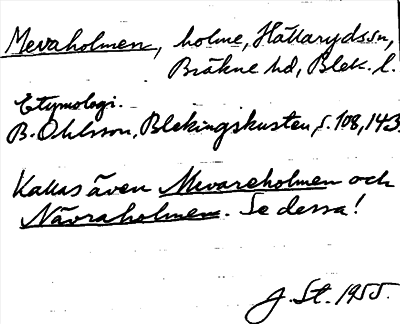 Mevaholmen, holme, Hällarydssn,
Bräkne hd, Blek. l.
Etymologi.
B. Ohlsson, Blekingskusten, s. 108, 143.
Kallas även Mevareholmen och
Nävraholmen. Se dessa!
J. St. 1955.